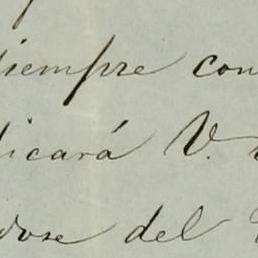 siempre con
icará V.
dose del